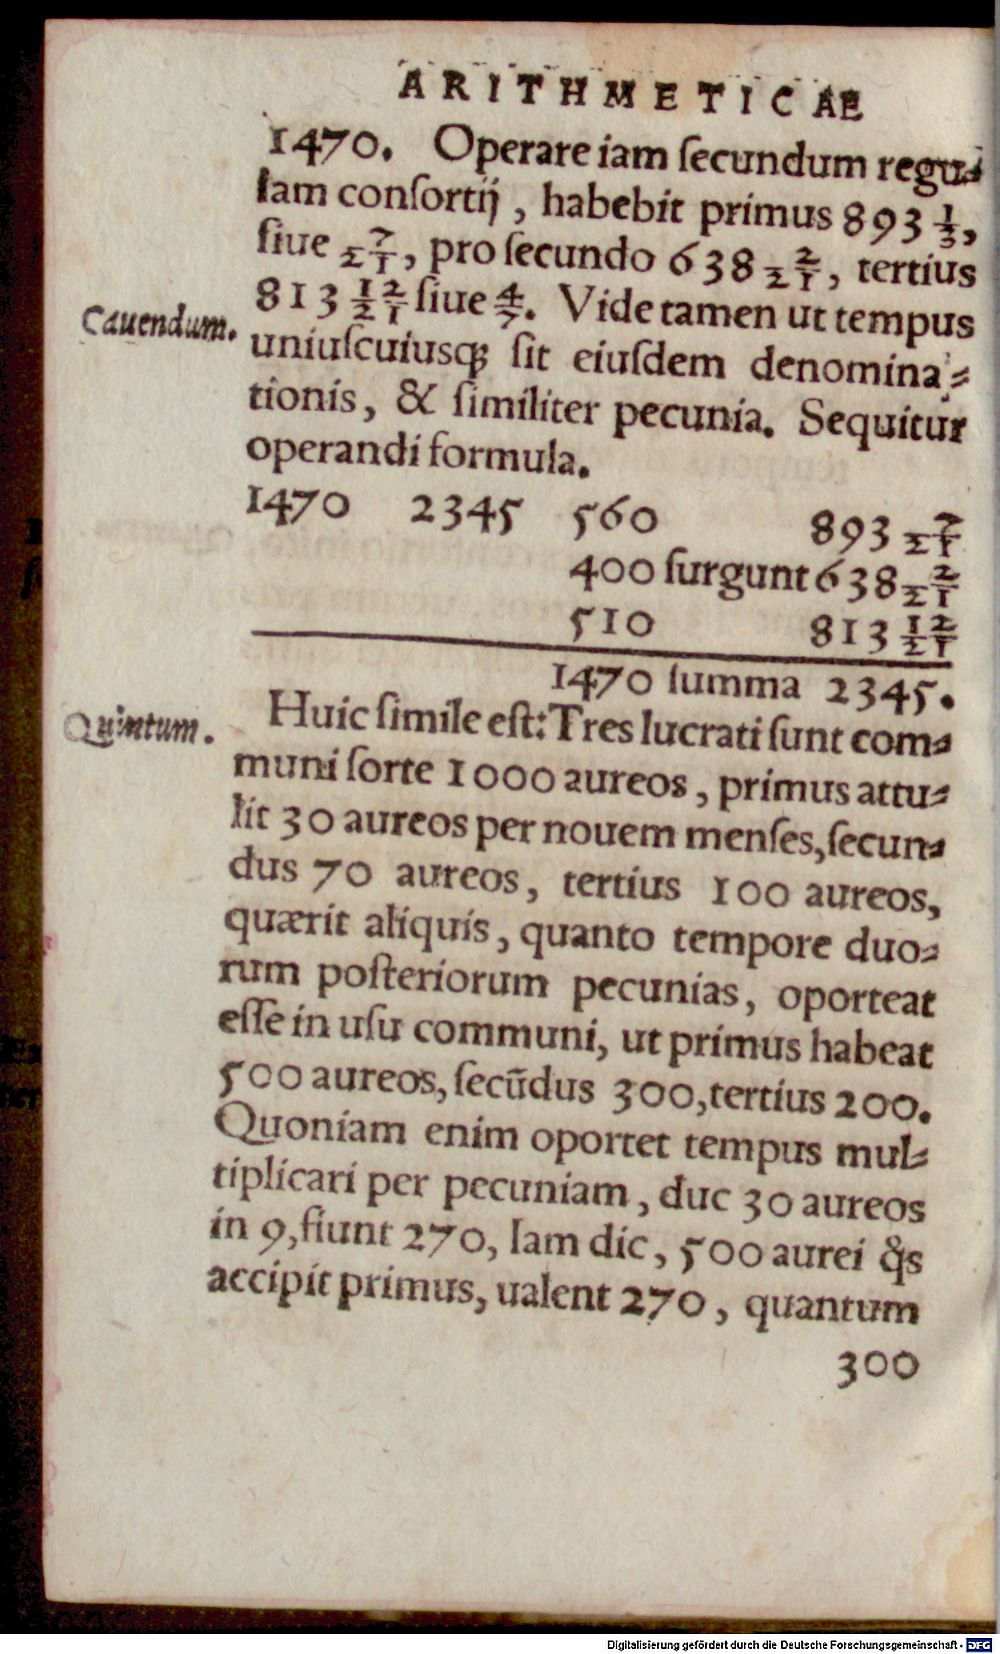 ARITHMETICAE
1470. Operare iam ſecundum regu⸗
lam conſortij, habebit primus 893 1/3,
ſiue 7/21, pro ſecundo 638 2/21, tertius
813 12/21 ſiue 4/7. Vide tamen ut tempus
Cauendum.
uniuſcuiusqꝫ ſit eiuſdem denomina⸗
tionis, & ſimiliter pecunia. Sequitur
operandi formula.
1470 2345 560 893 7/21
400 ſurgunt 638 2/21
510 813 12/21
1470 ſumma 2345.
Quintum.
Huic ſimile eſt: Tres lucrati ſunt com⸗
muni ſorte 1000 aureos, primus attu⸗
lit 30 aureos per nouem menſes, ſecun⸗
dus 70 aureos, tertius 100 aureos,
quærit aliquis, quanto tempore duo⸗
rum poſteriorum pecunias, oporteat
eſſe in uſu communi, ut primus habeat
500 aureos, ſecūdus 300, tertius 200.
Quoniam enim oportet tempus mul⸗
tiplicari per pecuniam, duc 30 aureos
in 9, fiunt 270, Iam dic, 500 aurei q̊s
accipit primus, ualent 270, quantum
300
Digitalisierung gefördert durch die Deutsche Forschungsgemeinschaft - DFG